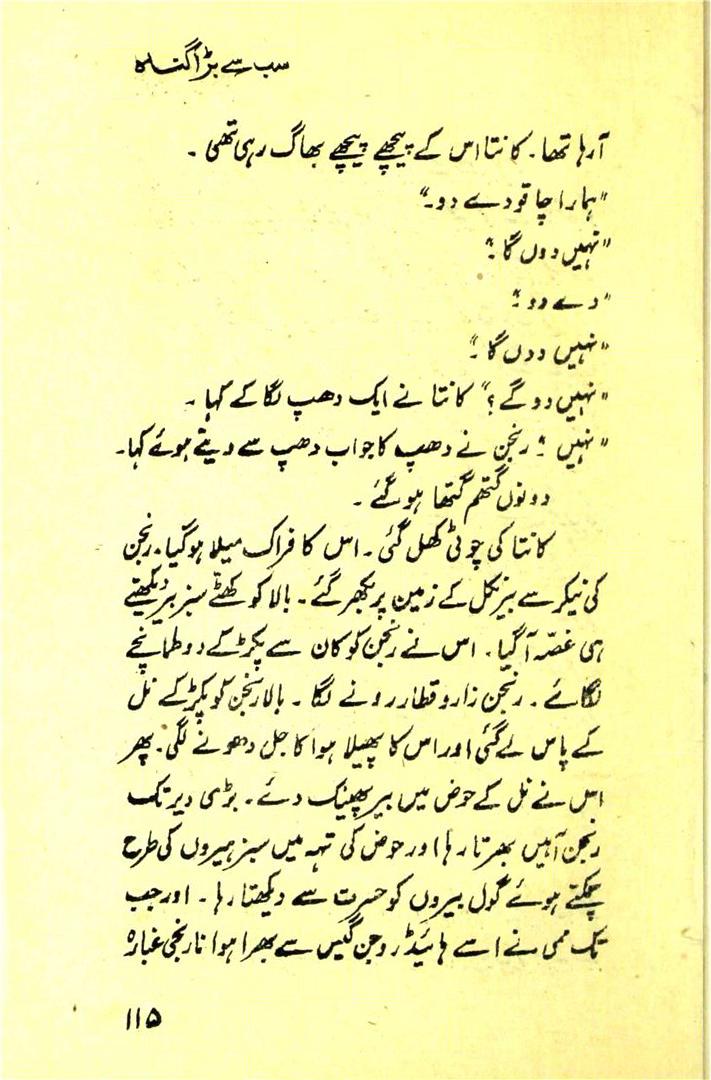 سب سے بڑا گناہ
آ رہا تھا۔ کانتا اس کے پیچھے پیچھے بھاگ رہی تھی۔
"ہمارا چاقو دے دو۔"
"نہیں دوں گا۔"
"دے دو۔"
"نہیں دوں گا۔"
"نہیں دو گے؟" کانتا نے ایک دھپ لگا کے کہا۔
"نہیں۔" رنجن نے دھپ کا جواب دھپ سے دیتے ہوئے کہا۔
دونوں گتھم گتھا ہو گئے۔
کانتا کی چوٹی کھل گئی۔ اس کا فراک میلا ہو گیا۔ رنجن
کی نیکر سے بیر نکل کے زمین پر بکھر گئے۔ بالا کو کھٹے سبز بیر دیکھتے
ہی غصّہ آ گیا۔ اس نے رنجن کو کان سے پکڑ کے دو طمانچے
لگائے۔ رنجن زار و قطار رونے لگا۔ بالا رنجن کو پکڑ کے نل
کے پاس لے گئی اور اس کا پھیلا ہوا کاجل دھونے لگی۔ پھر
اس نے نل کے حوض میں بیر پھینک دئے۔ بڑی دیر تک
رنجن آہیں بھرتا رہا اور حوض کی تہہ میں سبز ہیروں کی طرح
چمکتے ہوئے گول بیروں کو حسرت سے دیکھتا رہا۔ اور جب
تک ممی نے اسے ہائیڈروجن گیس سے بھرا ہوا نارنجی غبارہ
۱۱۵